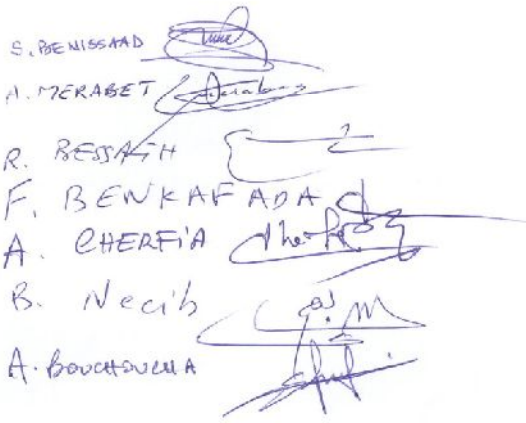 S. BENISSAAD
A. MERABET
R. BESSAIH
F. BENKAFADA
A. CHERFiA
B. Necib
A. BOUCHOUCHA